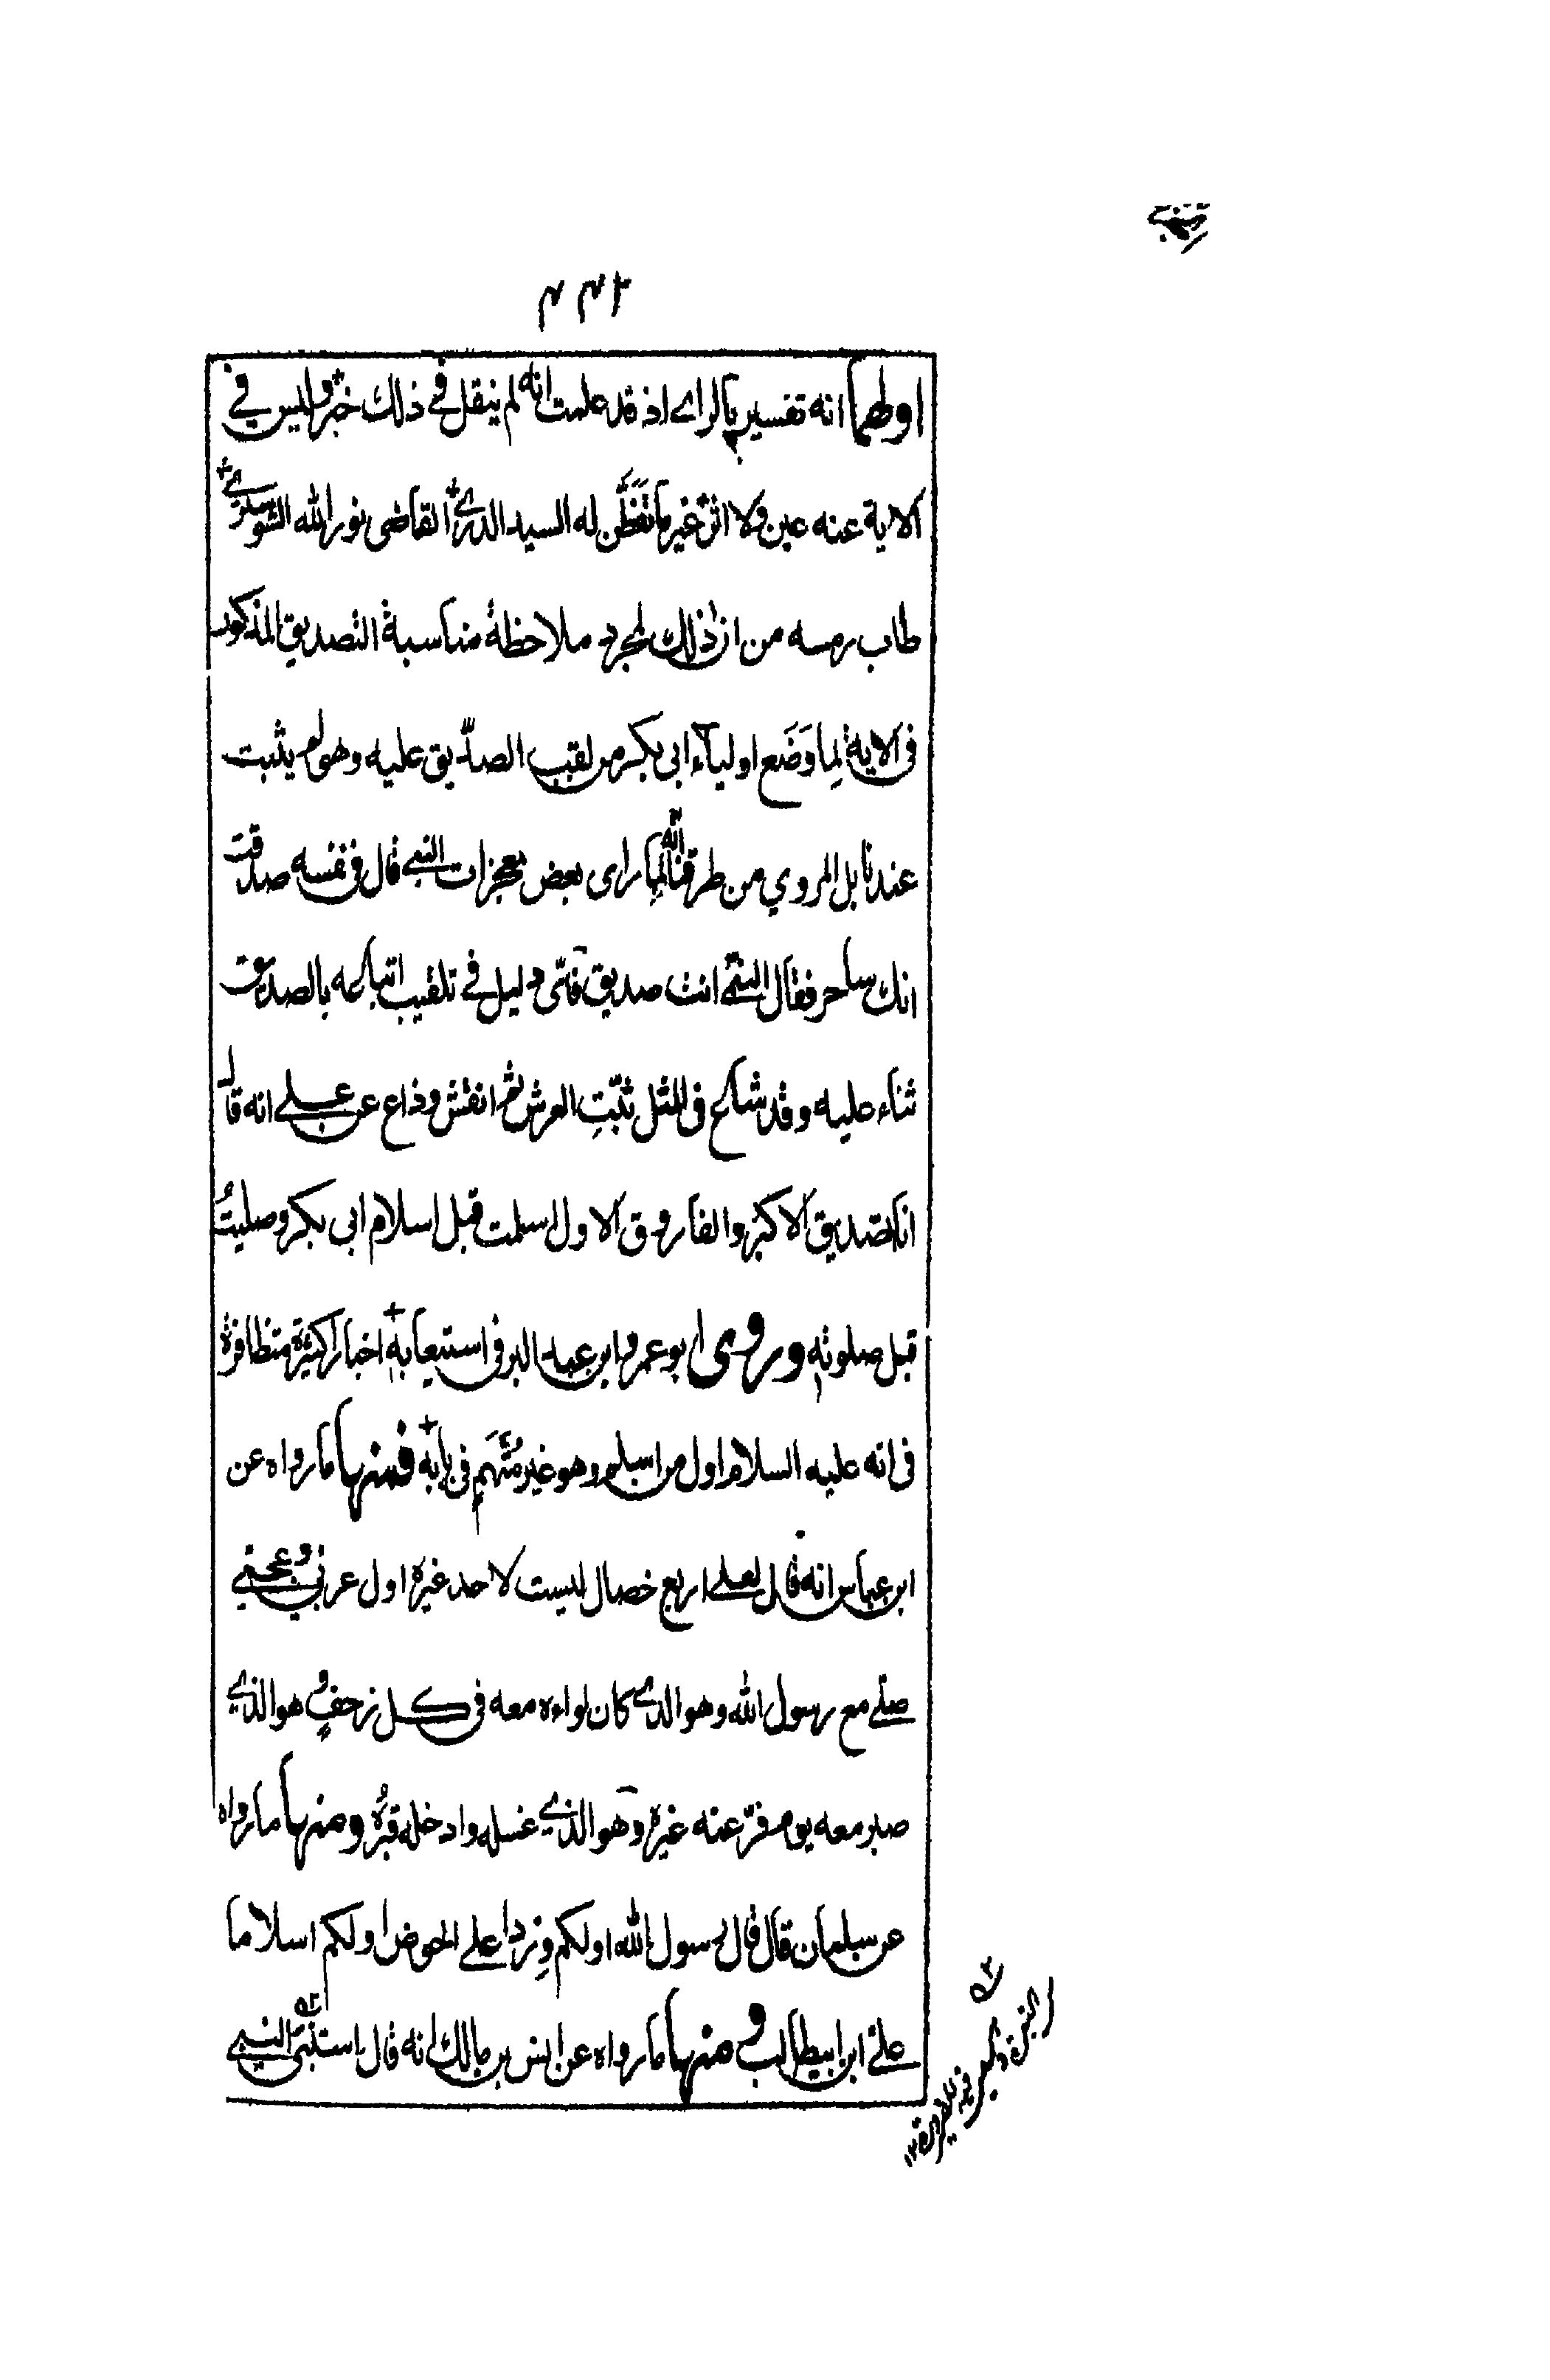 ٢٣٦
اولهما انه تفسير بالراے اذ قد علمت انه لم ينقل فے ذلك خبر وليس فے
الاية عنه عين ولا اثر غير ما تفطَّن له السيد الدرے القاضى نور الله الشوسترے
طاب رمسه من ان ذلك لمجرد ملاحظة مناسبة التصديق المذكور
فى الاية لِما وَضَع اوليآء ابى بكر من لقب الصدّيق عليه وهو لم يثبت
عندنا بل المروي من طرقنا انه لما راى بعض معجزات النبے قال فى نفسه صدقت
انك ساحر فقال النبے انت صديق فاىّ دليل فے تلقيب اتباعه بالصديق
ثناء عليه وقد شاع فى المثل ثبّتِ العرش ثم انقش وذاع عن علے انه قال
انا الصديق الاكبر والفاروق الاول اسلمت قبل اسلام ابى بكر وصليتُ
قبل صلوته وروى ابو عمرو ابن عبد البر فى استيعابه اخبارا كثيرة متظافرة
فى انه عليه السلام اول من اسلم وهو غير مُتَّهَم فى بابه فمنها ما رواه عن
ابن عباس انه قال لعلے اربع خصال ليست لاحد غيره اول عربي وعجمے
صلے مع رسول الله وهو الذے كان لواءه معه فى كل زحفٍ وهو الذے
صبر معه يوم فرّ عنه غيره وهو الذے غسله وادخله قبرُه ومنها ما رواه
عن سلمان قال قال رسول الله اولكم وِردا علے الحوض اولكم اسلاما
علے ابن ابيطالب ومنها ما رواه عن انس بن مالك انه قال استنبئ النبے